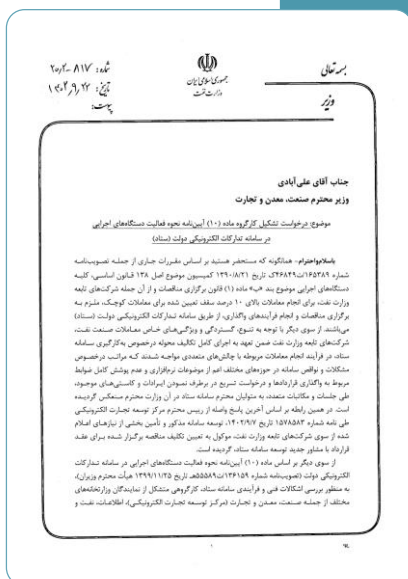 بسمه تعالی
جمهوری اسلامی ایران
وزارت نفت
وزیر
شماره: ۸۱۷-۲۰/۲
تاریخ: ۱۴۰۲/۹/۲۲
پیوست:
جناب آقای علی‌آبادی
وزیر محترم صنعت، معدن و تجارت
موضوع: درخواست تشکیل کارگروه ماده (۱۰) آیین‌نامه نحوه فعالیت دستگاه‌های اجرایی
در سامانه تدارکات الکترونیکی دولت (ستاد)
باسلام‌واحترام- همانگونه که مستحضر هستید بر اساس مقررات جاری از جمله تصویب‌نامه
شماره ۱۶۵۳۸۹/ت۴۶۸۴۹ک تاریخ ۱۳۹۰/۸/۲۱ کمیسیون موضوع اصل ۱۳۸ قانون اساسی، کلیه
دستگاه‌های اجرایی موضوع بند «ب» ماده (۱) قانون برگزاری مناقصات و از آن جمله شرکت‌های تابعه
وزارت نفت، برای انجام معاملات بالای ۱۰ درصد سقف تعیین شده برای معاملات کوچک، ملزم به
برگزاری مناقصات و انجام فرآیندهای واگذاری، از طریق سامانه تدارکات الکترونیکی دولت (ستاد)
می‌باشند. از سوی دیگر با توجه به تنوع، گستردگی و ویژگی‌های خاص معاملات صنعت نفت،
شرکت‌های تابعه وزارت نفت ضمن تعهد به اجرای کامل تکالیف محوله درخصوص به‌کارگیری سامانه
ستاد، در فرآیند انجام معاملات مربوطه با چالش‌های متعددی مواجه شدند که مراتب درخصوص
مشکلات و نواقص سامانه در حوزه‌های مختلف اعم از موضوعات نرم‌افزاری و عدم پوشش کامل ضوابط
مربوط به واگذاری قراردادها و درخواست تسریع در برطرف نمودن ایرادات و کاستی‌های موجود،
طی جلسات و مکاتبات متعدد، به متولیان محترم سامانه ستاد در آن وزارت محترم منعکس گردیده
است. در همین رابطه بر اساس آخرین پاسخ واصله از رییس محترم مرکز توسعه تجارت الکترونیکی
طی نامه شماره ۱۵۷۸۵۸۳ تاریخ ۱۴۰۲/۹/۷، توسعه سامانه مذکور و تأمین بخشی از نیازهای اعلام
شده از سوی شرکت‌های تابعه وزارت نفت، موکول به تعیین تکلیف مناقصه برگزار شده برای عقد
قرارداد با مشاور جدید توسعه سامانه ستاد، گردیده است.
از سوی دیگر بر اساس ماده (۱۰) آیین‌نامه نحوه فعالیت دستگاه‌های اجرایی در سامانه تدارکات
الکترونیکی دولت (تصویب‌نامه شماره ۱۳۶۱۵۹/ت۵۵۵۸۹هـ تاریخ ۱۳۹۹/۱۱/۲۵ هیأت محترم وزیران)،
به منظور بررسی اشکالات فنی و فرآیندی سامانه ستاد، کارگروهی متشکل از نمایندگان وزارتخانه‌های
مختلف از جمله صنعت، معدن و تجارت (مرکز توسعه تجارت الکترونیکی)، اطلاعات، نفت و
۱